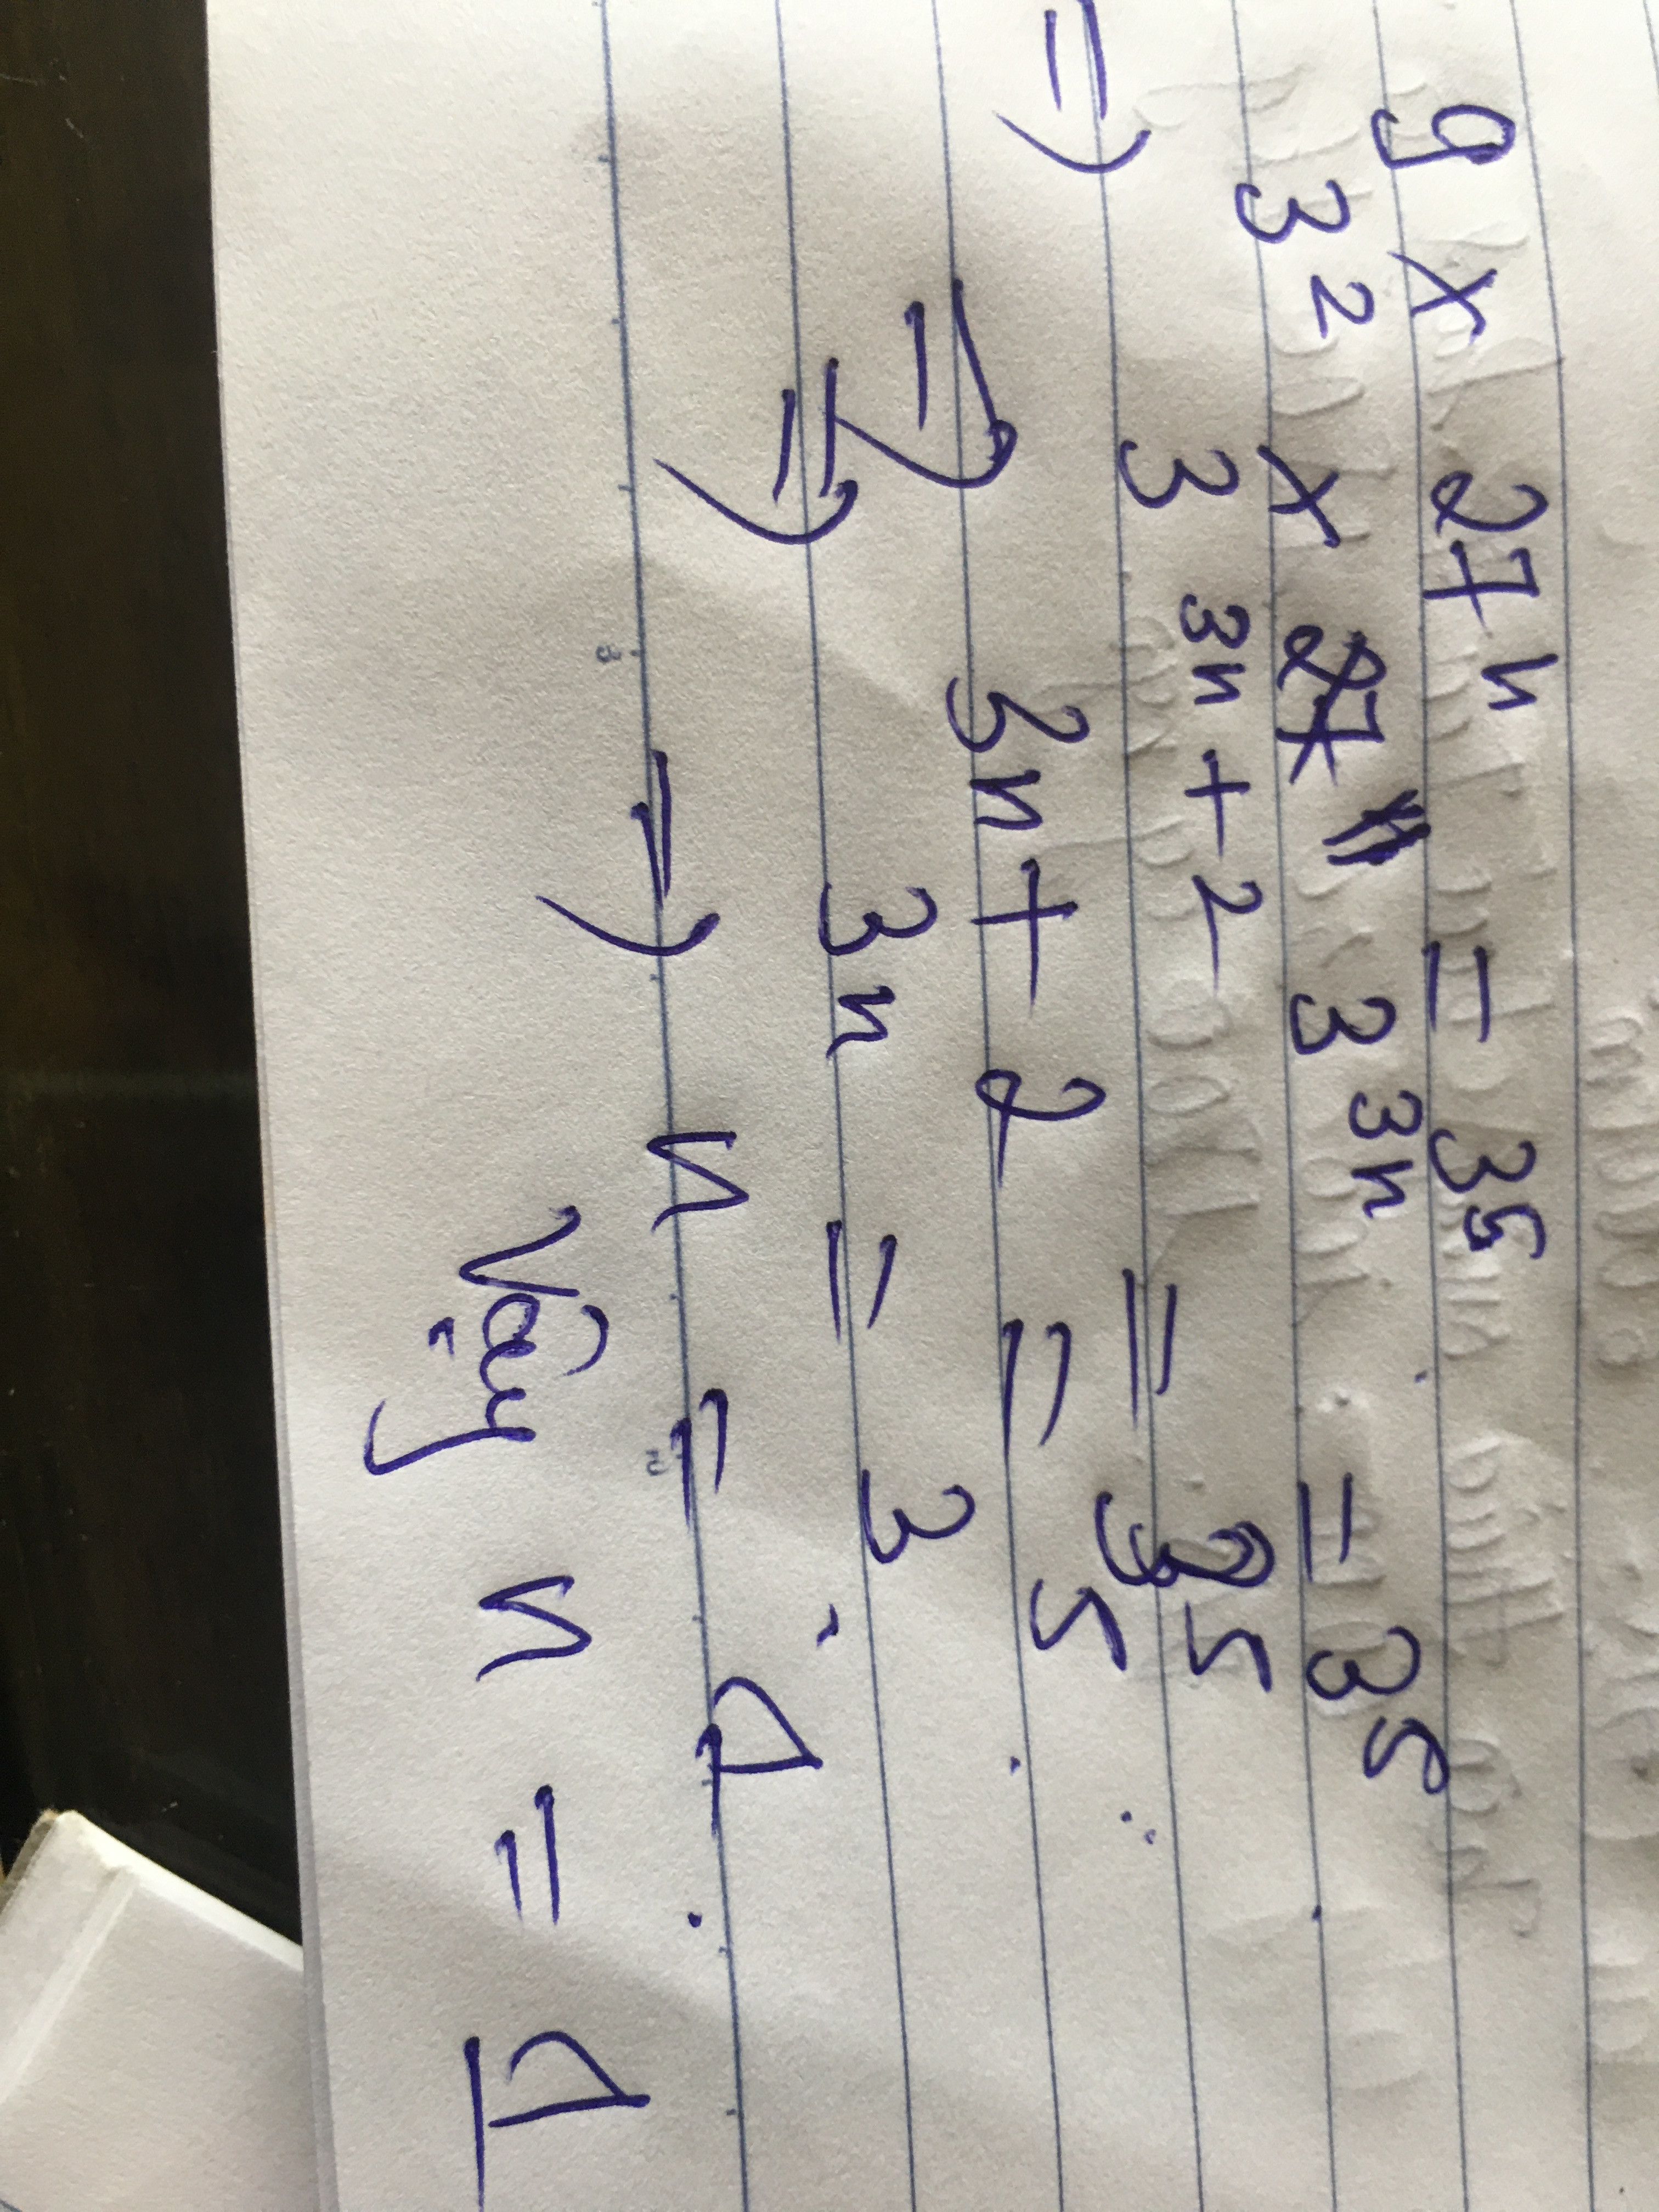 9 x 27ⁿ = 3⁵
3² x 3³ⁿ = 3⁵
=> 3³ⁿ⁺² = 3⁵
=> 3n + 2 = 5
=> 3n = 3
=> n = 1
Vậy n = 1